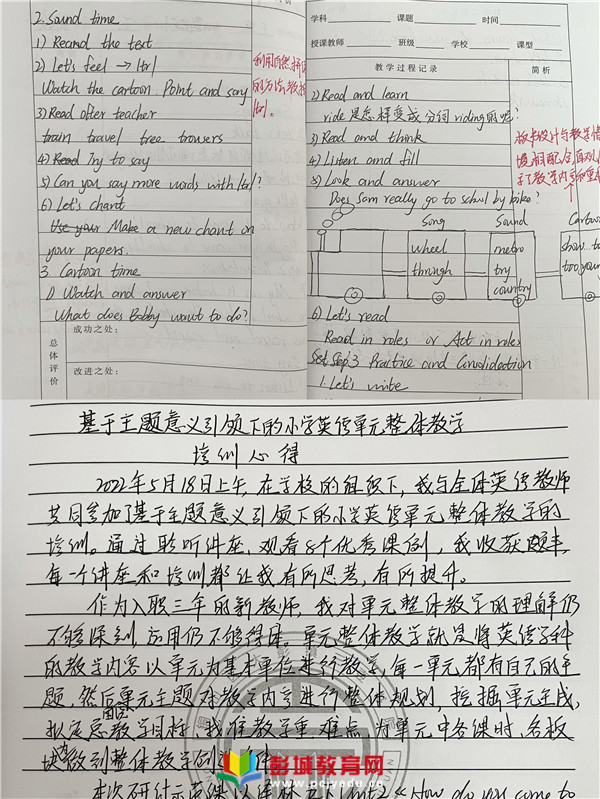 2. Sound time
1) Reand the text
2) Let's feel → /tr/
Watch the cartoon. Point and say
3) Read ofter teacher
train travel tree trousers
4) Read Try to say
5) Can you say more words with /tr/?
6) Let's chant
Use your Make a new chant on
your papers.
3. Cartoon time
1) Watch and answer
What does Bobby want to do?
利用自然拼读
的方法,教授
/tr/.
总体评价
成功之处:
改进之处:
学科 课题 时间
授课教师 班级 学校 课型
教学过程记录 简析
2) Read and learn
ride 是怎样变成分词 riding 的呢?
3) Read and think
4) Listen and fill
5) Look and answer
Does Sam really go to school by bike?
Song Sound Cartoon
wheel metro show
through try too young
country
6) Let's read
Read in roles or Act in roles
Step 3 Practice and Consolidation
1. Let's write
板书设计与教学情
境相配合,直观
了教学内容和重
基于主题意义引领下的小学英语单元整体教学
培训心得
2022年5月18日上午,在学校的组织下,我与全体英语教师
共同参加了基于主题意义引领下的小学英语单元整体教学的
培训。通过聆听讲座、观看8个优秀课例,我收获颇丰,
每一个讲座和培训都让我有所思考,有所提升。
作为入职三年的新教师,我对单元整体教学的理解仍
不够深刻,应用仍不够得体。单元整体教学就是将英语学科
的教学内容以单元为基本单位进行教学,每一单元都有自己的主
题,然后围绕单元主题对教学内容进行整体规划,挖掘单元主线,
拟定总教学目标,找准教学重难点,为单元中各课时、各板
块做到整体教学
本次研讨示范课以译林五下Unit2《How do you come to
彭城教育网
www.pcjyedu.com